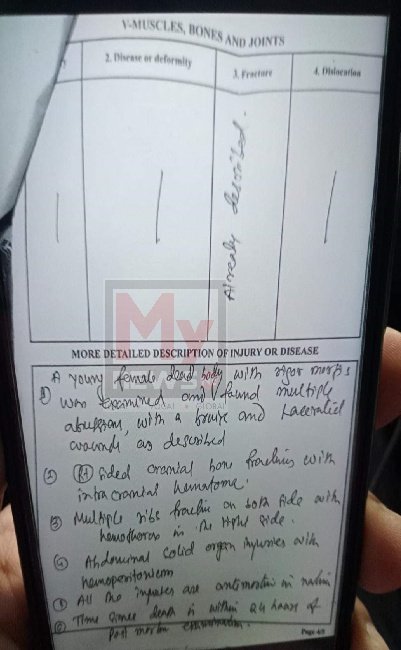 V-MUSCLES, BONES AND JOINTS
2. Disease or deformity
3. Fracture
4. Dislocation
Already described.
My
NEWS
GLOBAL
MORE DETAILED DESCRIPTION OF INJURY OR DISEASE
A young female dead body with rigor mortis
① was examined and found multiple
abrasions, with a bruise and Lacerated
wounds as described
② (Rt) sided cranial bone fractures with
intracranial hematoma.
③ Multiple ribs fractures on both side with
hemothorax in the right side.
④ Abdominal solid organ injuries with
hemoperitoneum
All the injuries are antimortem in nature
⑥ Time since death is within 24 hours of
post mortem examination.